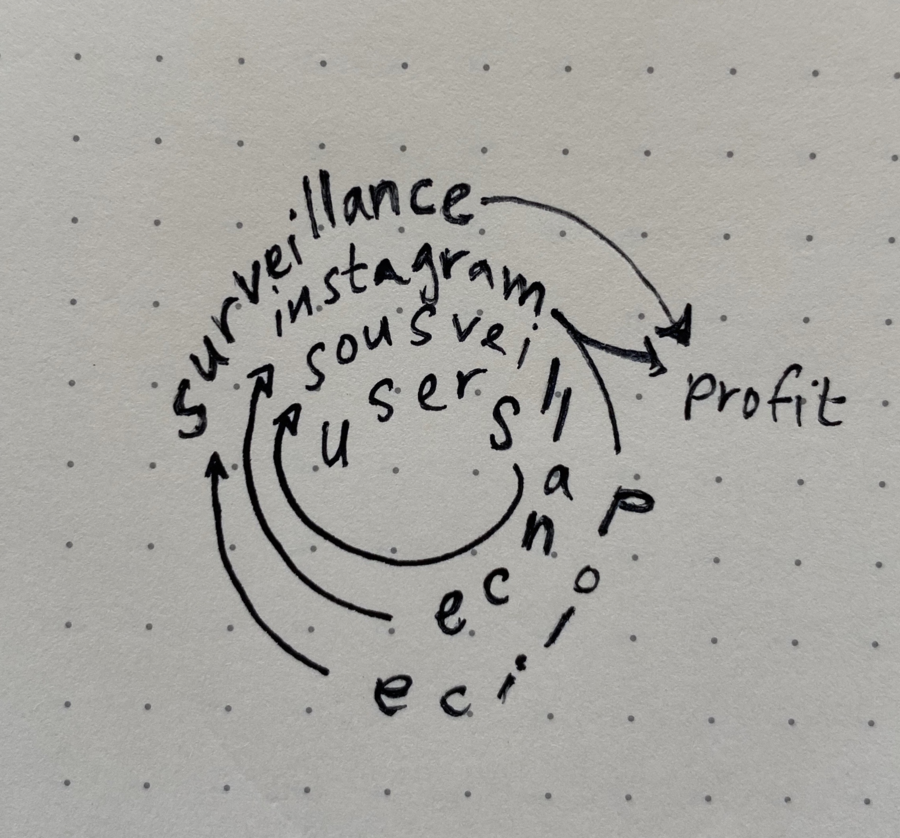 surveillance
instagram
sousveillance
users
Profit
police